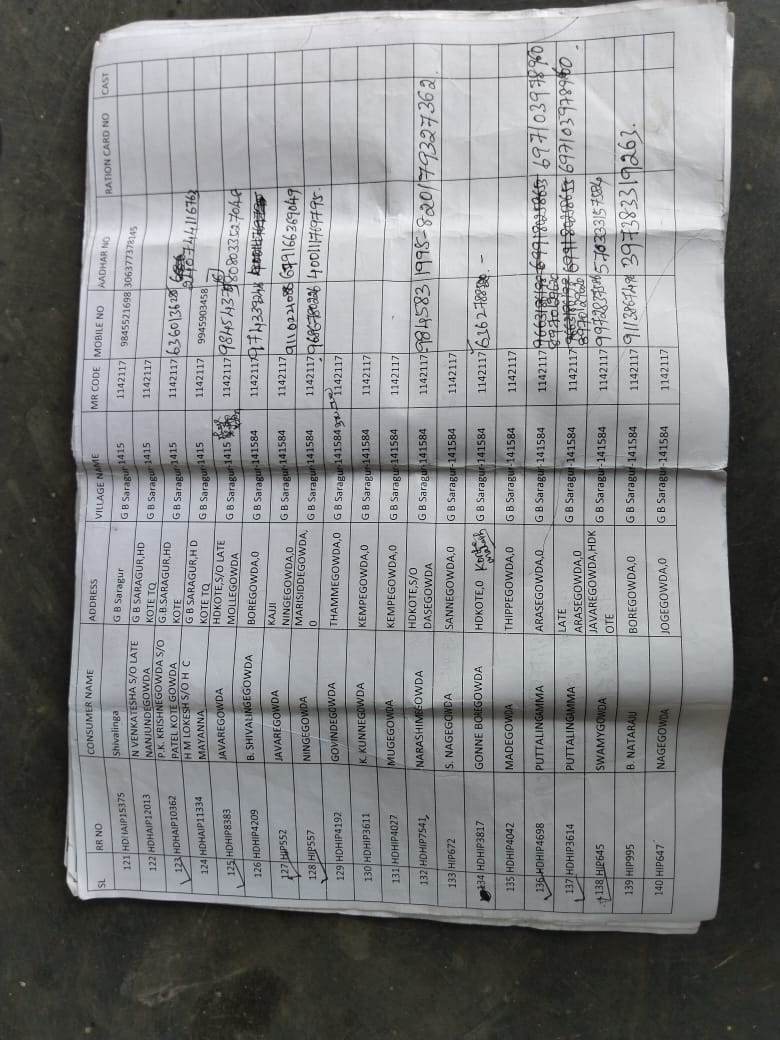 SL RR NO CONSUMER NAME ADDRESS VILLAGE NAME MR CODE MOBILE NO AADHAR NO RATION CARD NO CAST
121 HDHAIP15375 Shivalinga G B Saragur G B Saragur-1415 1142117 9845521698 306377378145
122 HDHAIP12013 N VENKATESHA S/O LATE NANJUNDEGOWDA G B SARAGUR,HD KOTE TQ G B Saragur-1415 1142117
123 HDHAIP10362 P.K. KRISHNEGOWDA S/O PATEL KOTE GOWDA G.B.SARAGUR,HD KOTE G B Saragur-1415 1142117
124 HDHAIP11334 H M LOKESH S/O H C MAYANNA G B SARAGUR,H D KOTE TQ G B Saragur-1415 1142117 9945903458 940744116762
125 HDHIP8383 JAVAREGOWDA HDKOTE,S/O LATE MOLLEGOWDA G B Saragur-1415 1142117
126 HDHIP4209 B. SHIVALINGEGOWDA BOREGOWDA,0 G B Saragur-141584 1142117
127 HIP552 JAVAREGOWDA KAJI NINGEGOWDA,0 G B Saragur-141584 1142117 699166369049
128 HIP557 NINGEGOWDA MARISIDDEGOWDA,0 G B Saragur-141584 1142117 400111769795
129 HDHIP4192 GOVINDEGOWDA THAMMEGOWDA,0 G B Saragur-141584 1142117
130 HDHIP3611 K.KUNNEGOWDA KEMPEGOWDA,0 G B Saragur-141584 1142117
131 HDHIP4027 MUGEGOWDA KEMPEGOWDA,0 G B Saragur-141584 1142117
132 HDHIP7541 NARASHIMEGOWDA HDKOTE,S/O DASEGOWDA G B Saragur-141584 1142117 9845831995-820179327362
133 HIP672 S. NAGEGOWDA SANNEGOWDA,0 G B Saragur-141584 1142117
134 HDHIP3817 GONNE BOREGOWDA HDKOTE,0 G B Saragur-141584 1142117
135 HDHIP4042 MADEGOWDA THIPPEGOWDA,0 G B Saragur-141584 1142117
136 HDHIP4698 PUTTALINGAMMA ARASEGOWDA,0 G B Saragur-141584 1142117 697103978960
137 HDHIP3614 PUTTALINGAMMA LATE ARASEGOWDA,0 G B Saragur-141584 1142117 697103978960
138 HIP645 SWAMYGOWDA JAVAREGOWDA,HDKOTE G B Saragur-141584 1142117
139 HIP995 B. NATARAJU BOREGOWDA,0 G B Saragur-141584 1142117 9113867498 397383319263
140 HIP647 NAGEGOWDA JOGEGOWDA,0 G B Saragur-141584 1142117